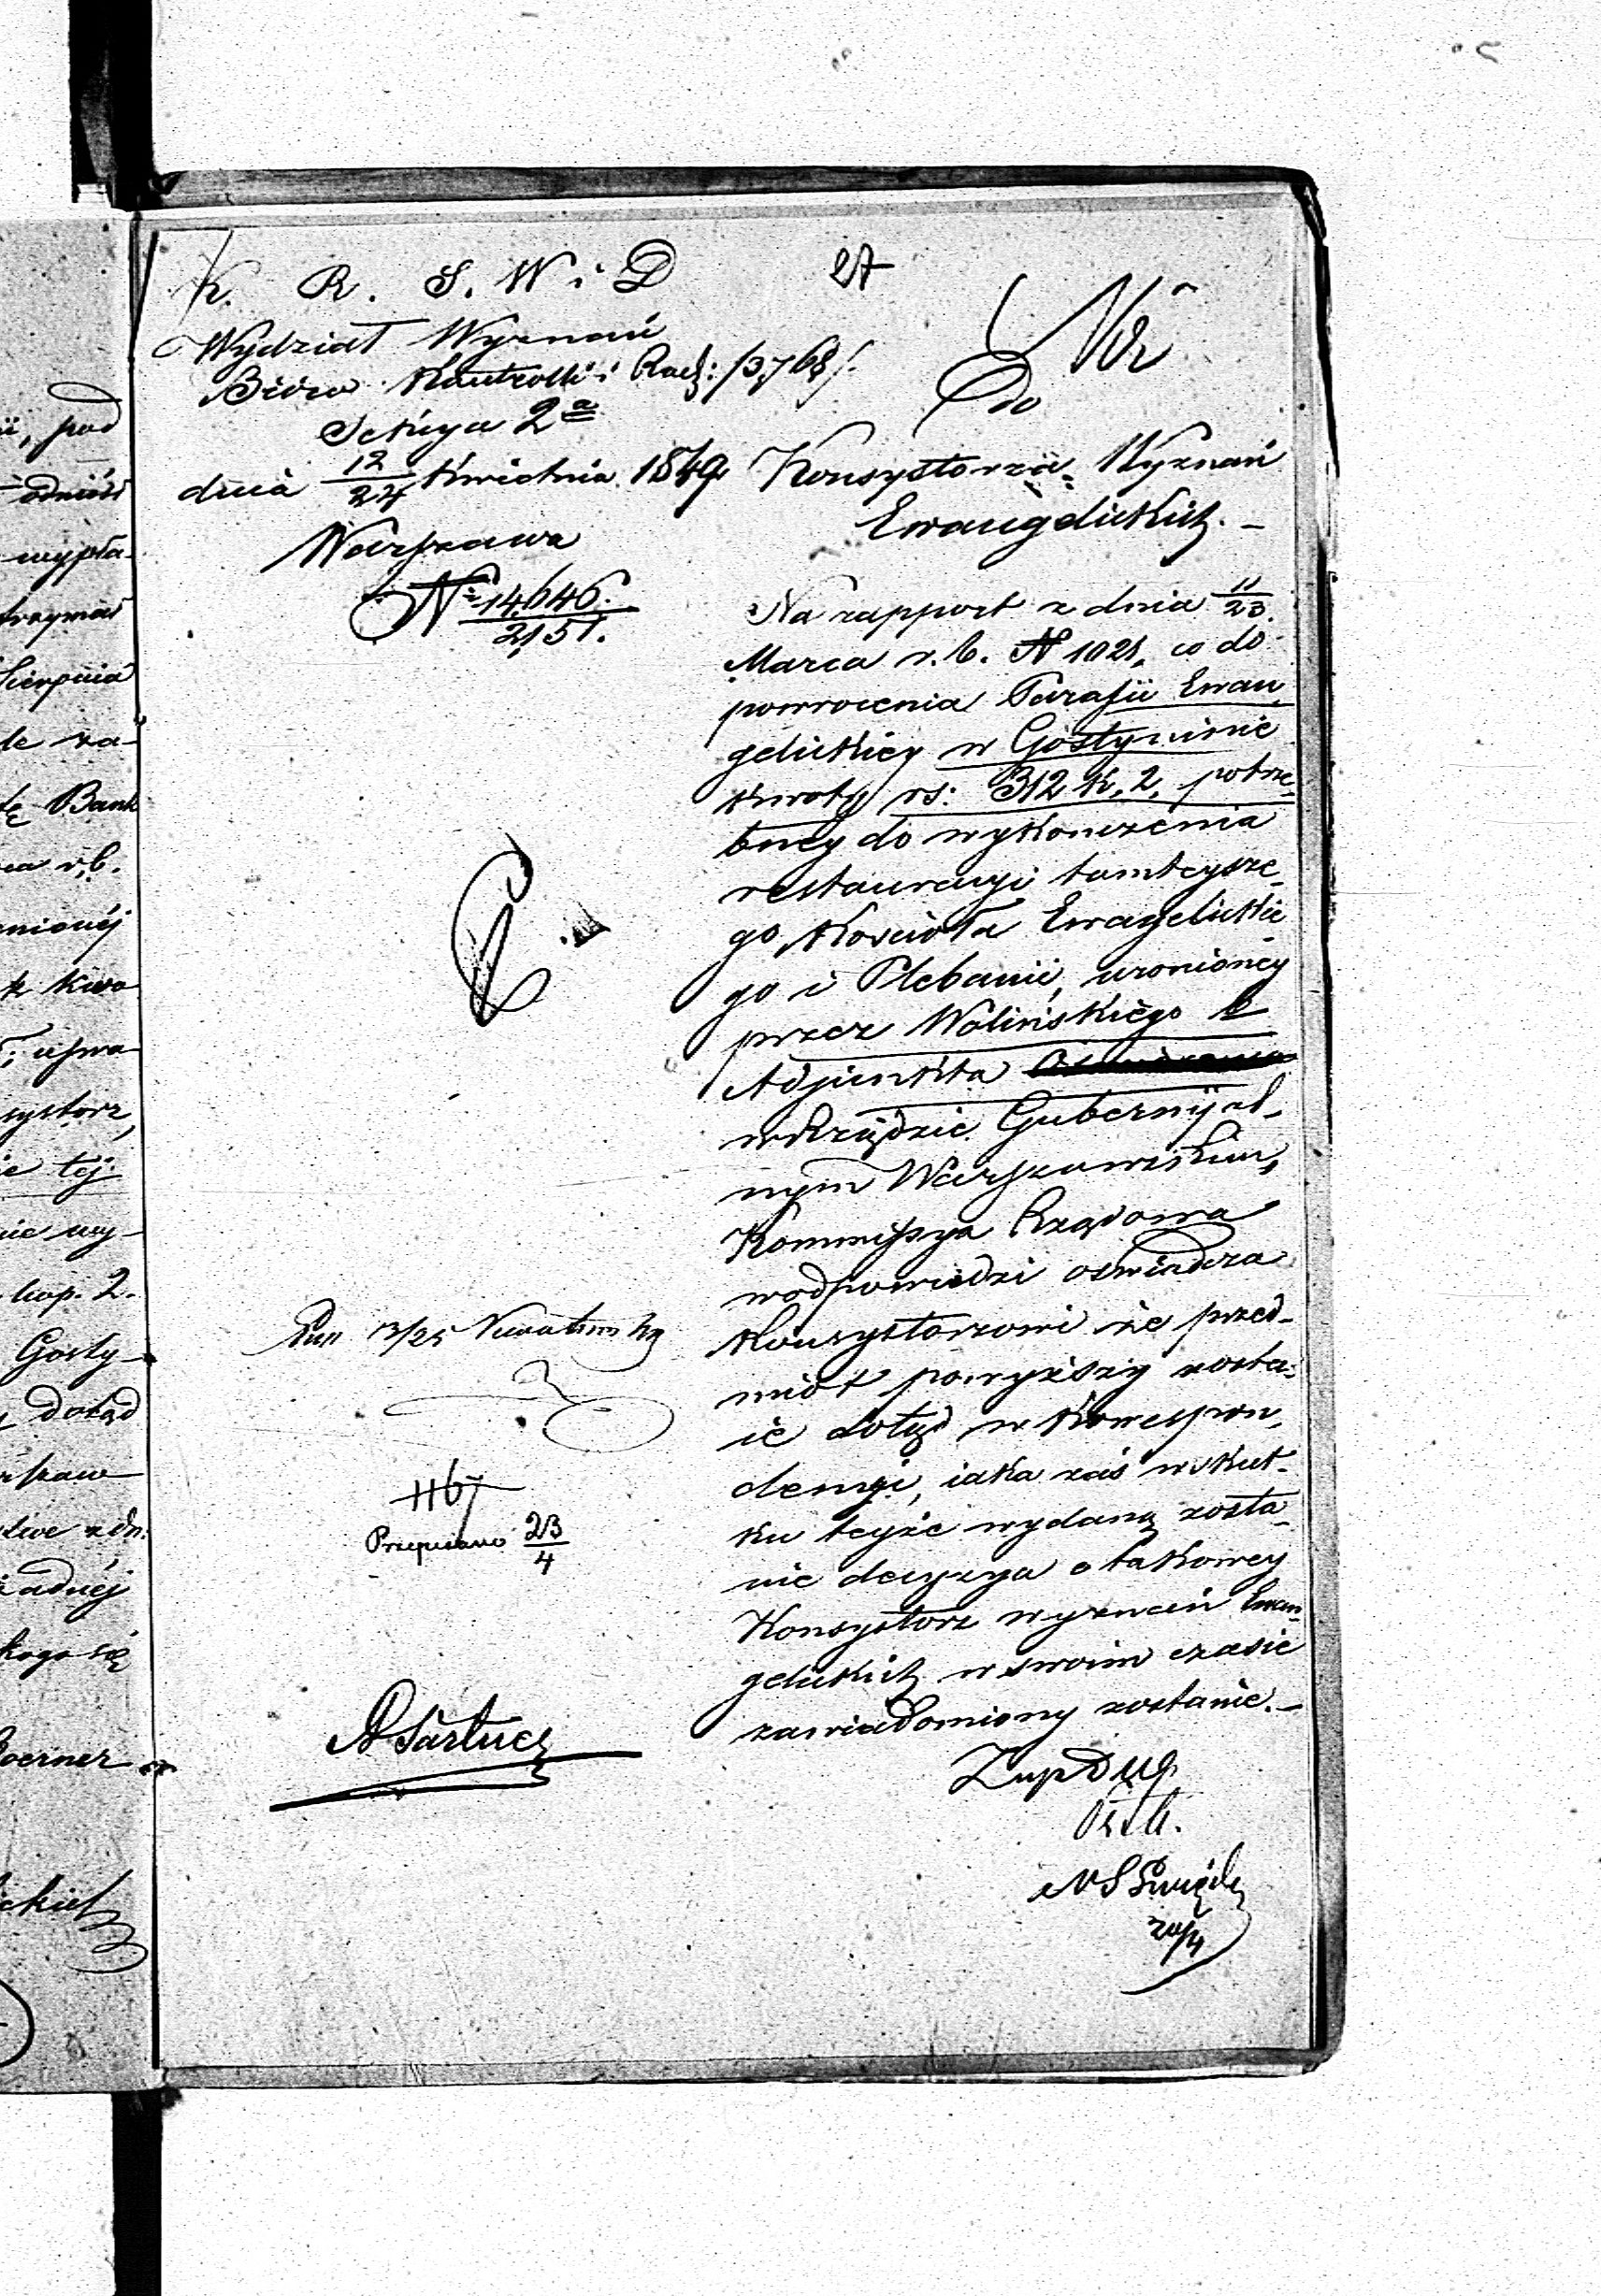 K. R. S. W i D
27
Wydział Wyznań
Biuro Kontrolli i Rach: /3768/.
Sekcya 2a
dnia 12/24 Kwietnia 1849
Warszawa
No 14,646./2,151.
Do
Konsystorza Wyznań
Ewangelickich. –
Na rapport z dnia 11/23.
Marca r. b. N 1021, co do
powrocenia Parafii Ewan,
gelickiey w Gostyninie
kwoty rs: 312 k. 2, potrze,
bney do wykonczenia
restauracyi tamteysze,
go Kościoła Ewagelickie
go i Plebanii, uronioney
przez Wolińskiego b
Adjunkta
w Rządzie Gubernijal,
nym Warszawskim,
Kommissya Rządowa
w odpowiedzi oświadcza
Konsystorzowi że przed-
miot powyższy zosta-
ie dotąd w korrespon,
dencyi, iaka zaś w skut-
ku teyże wydaną zosta-
nie decyzya o takowey
Konsystorz wyznań Ewan-
gelickich w swoim czasie
zawiadomiony zostanie. –
13/25
1167
Przepisano 23/4
ii, pod
wypła-
trzymać
Sierpnia
le za-
tę Bank
ca r. b.
mionéj
k kwo
systorz,
ie téj
nie wy-
kop. 2.
Gosty-
dotąd
rszaw
żadnéj
kogo się
oerner
ckich
20/4